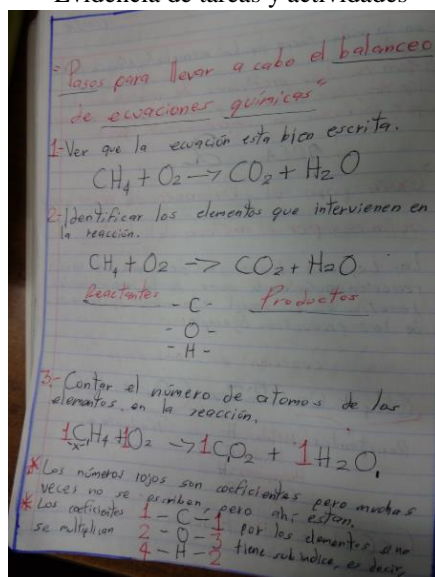 Evidencia de tareas y actividades
"Pasos para llevar a cabo el balanceo
de ecuaciones químicas"
1-Ver que la ecuación esta bien escrita.
CH4 + O2 -> CO2 + H2O
2-Identificar los elementos que intervienen en
la reacción.
CH4 + O2 -> CO2 + H2O
Reactantes Productos
- C -
- O -
- H -
3.- Contar el número de atomos de los
elementos, en la reacción,
1CH4 + 1O2 -> 1CO2 + 1H2O.
* Los números rojos son coeficientes pero muchas
veces no se escriben, pero ahí están,
* Los coeficientes 1 - C - 1 por los elementos si no
se multiplican 2 - O - 3 tiene sub indice, es decir,
4 - H - 2